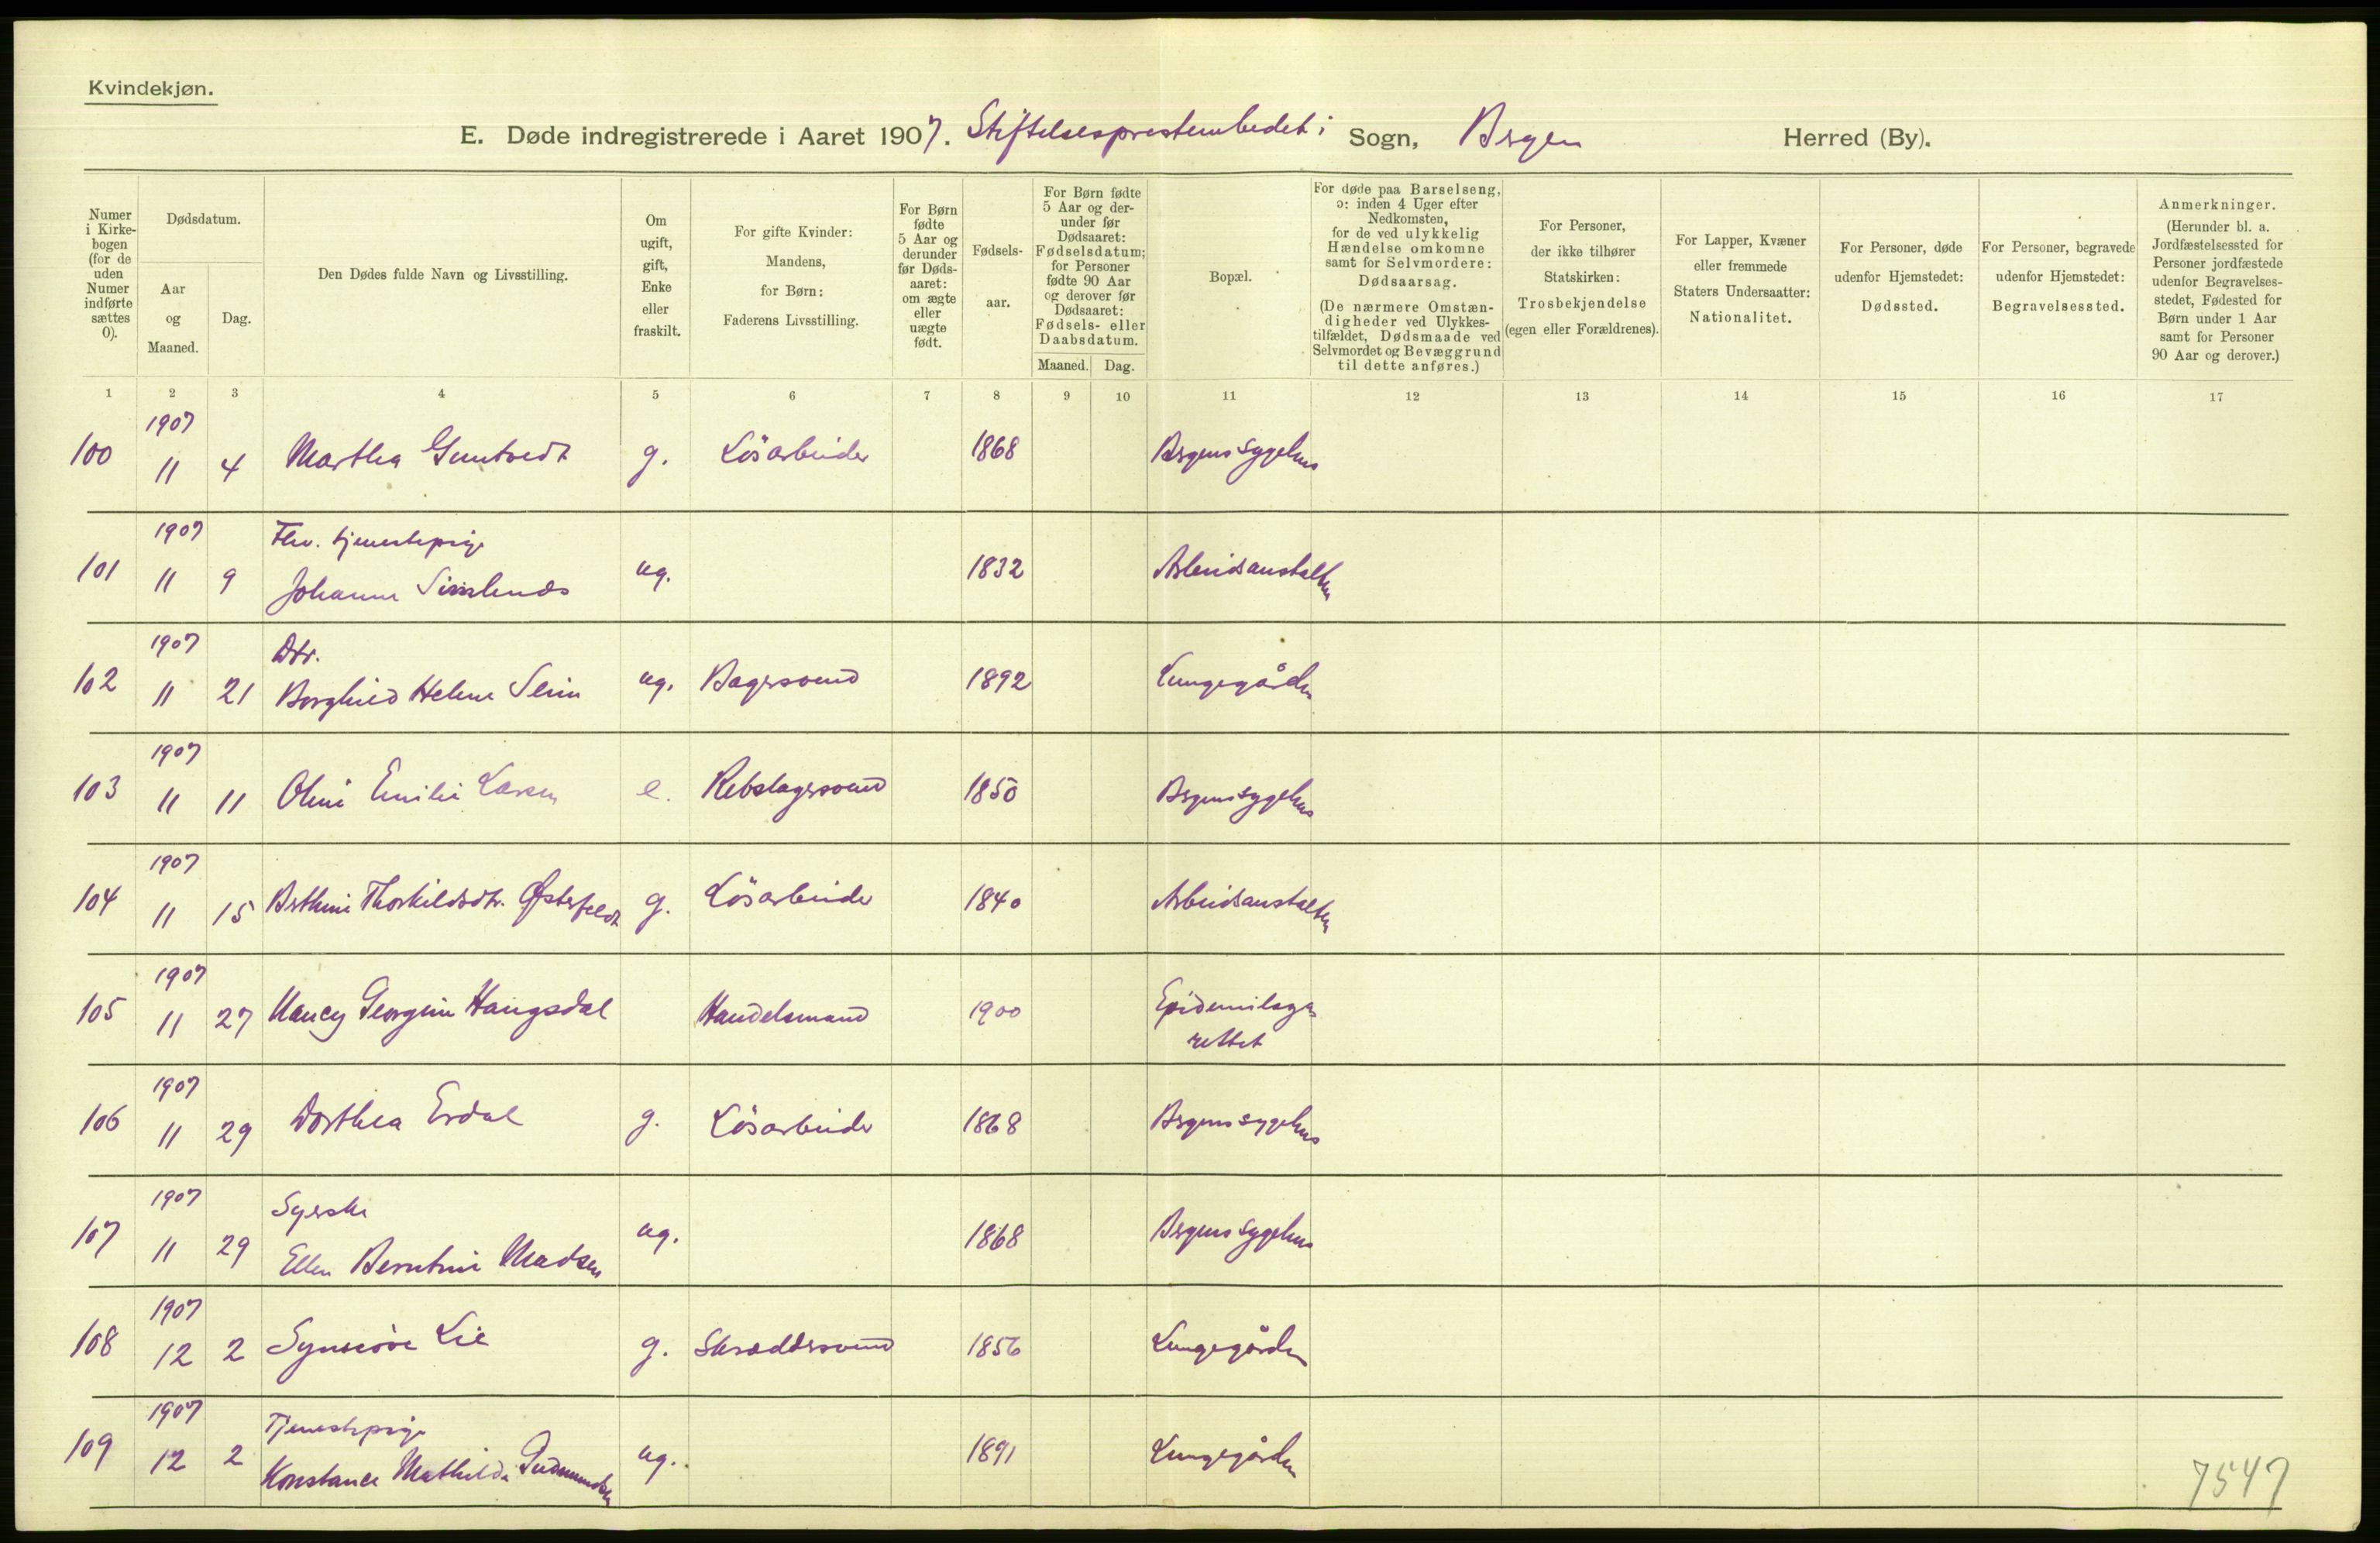 Kvindekjøn.
E. Døde indregistrerede i Aaret 1907. Stiftelsesprestembedet i Sogn, Bergen Herred (By).
Numer i Kirkebogen (for de uden Numer indførte sættes 0).
Dødsdatum.
Aar og Maaned.
Dag.
Den Dødes fulde Navn og Livsstilling.
Om ugift, gift, Enke eller fraskilt.
For gifte Kvinder: Mandens, for Børn: Faderens Livsstilling.
For Børn fødte 5 Aar og derunder før Dødsaaret: om ægte eller uægte født.
Fødselsaar.
For Børn fødte 5 Aar og derunder før Dødsaaret: Fødselsdatum; for Personer fødte 90 Aar og derover før Dødsaaret: Fødsels- eller Daabsdatum.
Maaned. Dag.
Bopæl.
For døde paa Barselseng, ɔ: inden 4 Uger efter Nedkomsten, for de ved ulykkelig Hændelse omkomne samt for Selvmordere: Dødsaarsag.
(De nærmere Omstændigheder ved Ulykkestilfældet, Dødsmaade ved Selvmordet og Bevæggrund til dette anføres.)
For Personer, der ikke tilhører Statskirken: Trosbekjendelse (egen eller Forældrenes).
For Lapper, Kvæner eller fremmede Staters Undersaatter: Nationalitet.
For Personer, døde udenfor Hjemstedet: Dødssted.
For Personer, begravede udenfor Hjemstedet: Begravelsessted.
Anmerkninger. (Herunder bl. a. Jordfæstelsessted for Personer jordfæstede udenfor Begravelsesstedet, Fødested for Børn under 1 Aar samt for Personer 90 Aar og derover.)
1 2 3 4 5 6 7 8 9 10 11 12 13 14 15 16 17
1907
100 11 4 Marthea Guntvedt g. Lösarbeider 1868 Bergens Sygehus
1907 Fhv. tjenestepige
101 11 9 Johanne ug. 1832 Arbeidsanstalten
1907 Dtr.
102 11 21 Borghild Helene ug. Bagersvend 1892 Lungegården
1907
103 11 11 Oline Emilie Larsen e. Rebslagersvend 1850 Bergens sygehus
1907
104 11 15 Berthine Thorkildsdtr. Østerfeldt g. Lösarbeider 1840 Arbeidsanstalten
1907
105 11 27 Nancy Georgine Haugsdal Handelsmand 1900 Epidemilaza
rettet
1907
106 11 29 Dorthea Erdal g. Lösarbeider 1868 Bergens sygehus
1907 Syerske
107 11 29 Ellen Berntine Madsen ug. 1868 Bergens Sygehus
1907
108 12 2 Synneöve Lie g. Skræddersvend 1856 Lungegården
1907 Tjenestepige
109 12 2 Konstance Mathilde Gudmundsen ug. 1891 Lungegården
7547